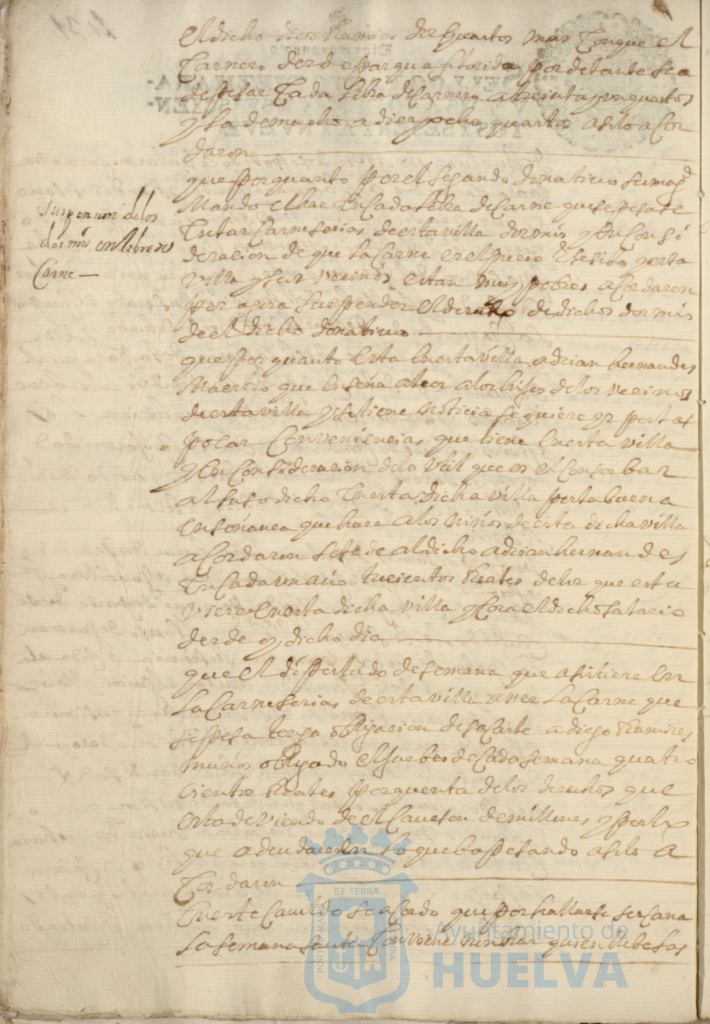 El dicho diego Ramires dos quartos mas Con que el
Carnero desde pasqua florida por delante sea
de pesar Cada libra de Carnero a treinta y un quartos
y la de macho a diez y ocho quartos asi lo acor
daron
que por quanto por el segundo donativo su magd
Mando echar En Cada libra de Carne que se pesase
En las Carneserias de esta villa dos mrs y En Consi
derasion de que la Carne es el precio y esta
villa y sus vecinos estan muy pobres acordaron
por aora suspender el derecho de dichos dos mrs
de el dicho donativo
suspension de los
dos mrs en libra de
Carne
que por quanto Esta En esta villa adrian hernandes
Maestro que Enseña a leer a los hijos de los vecinos
de esta villa y se tiene noticia se quiere yr por las
pocas Conveniencias que tiene En esta villa
y En Consideracion de lo util que es el Conserbar
al suso dicho En esta dicha villa por la buena
Enseñansa que hace a los niños de esta dicha villa
acordaron se le de al dicho adrian hernandes
En Cada un año treicientos Reales de los que estu
viere En esta dicha villa y Corra el dicho salario
desde oy dicho dia
que el diputado de semana que asistiere En
las Carneserias de esta villa a ver la Carne que
se pesa tenga obligacion de sacarle a diego Ramires
muños obligado el Juebes de Cada semana quatro
cientos Reales por quenta de los derechos que
esta deviendo de el Caveson de millones y por lo
que adeudare En lo que ba pesando asi lo a
Cordaron
En este Cavildo se acordo que por hallarse sercana
la semana santa Conviene nonbrar quien llebe las
ET TERRÆ
Ayuntamiento de
HUELVA